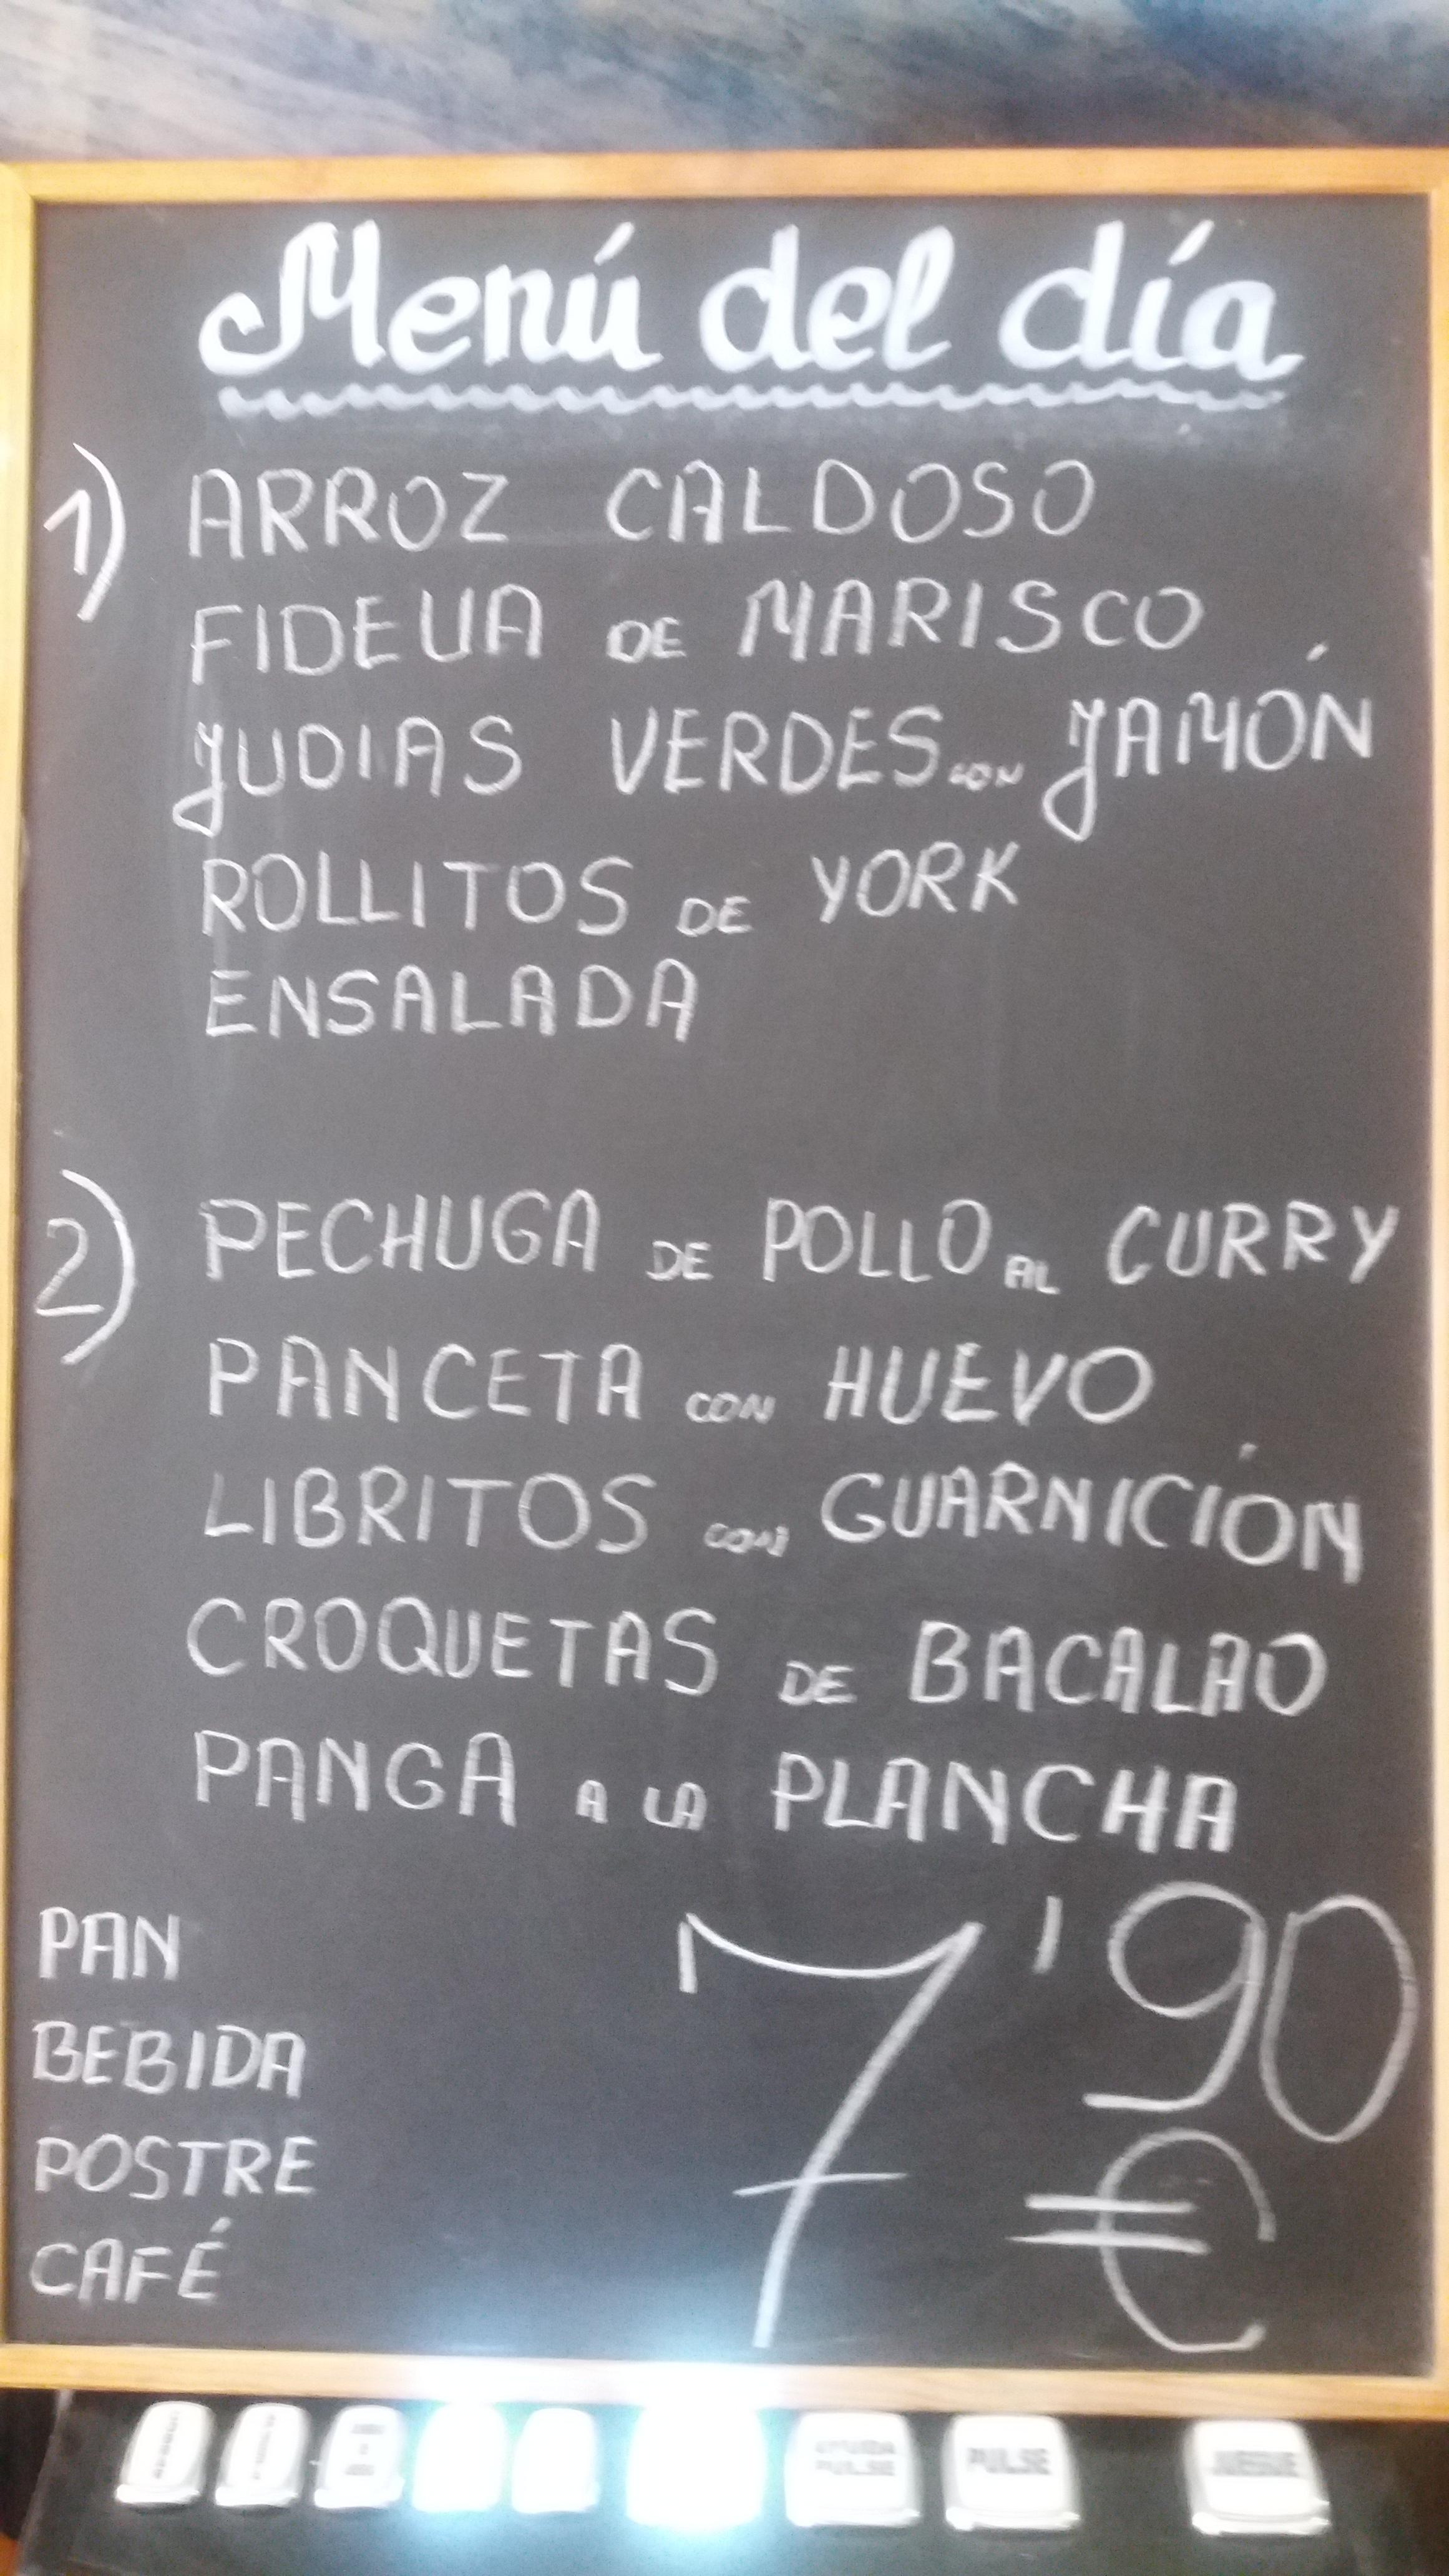 Menú del día
1) ARROZ CALDOSO
FIDEUA DE MARISCO
JUDIAS VERDES CON JAMÓN
ROLLITOS DE YORK
ENSALADA
2) PECHUGA DE POLLO AL CURRY
PANCETA CON HUEVO
LIBRITOS CON GUARNICIÓN
CROQUETAS DE BACALAO
PANGA A LA PLANCHA
PAN
BEBIDA
POSTRE
CAFÉ
7'90
€
AYUDA
PULSE
PULSE
JUEGUE